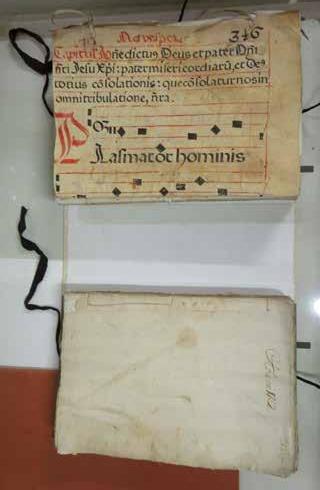 Ad vesperas 346
Capitulũ. Benedictus Deus et pater Dñi
ñri Jesu Xpi: pater misericordiarũ, et Deus
totius cõsolationis: qui cõsolatur nos in
omni tribulatione, ñra.
Plasmator hominis